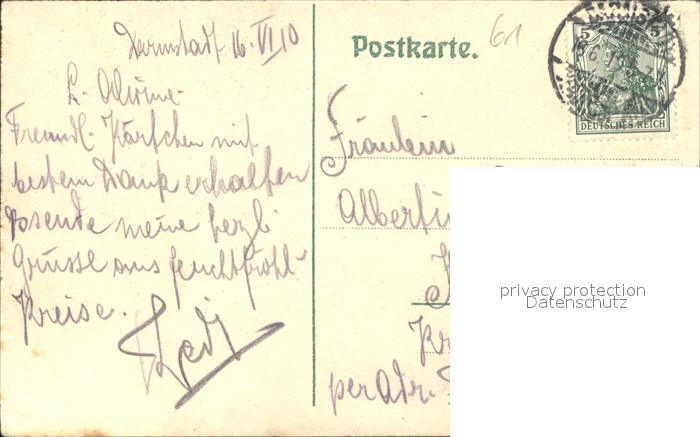 Darmstadt 16. VI 10
L. Alwine.
Freundl. Kärtchen mit
bestem Dank erhalten
sende meine herzl.
Grüsse aus feuchtfröhl.
Kreise.
61
Postkarte.
5 5
DEUTSCHES REICH
Fräulein
per Adr.
privacy protection
Datenschutz